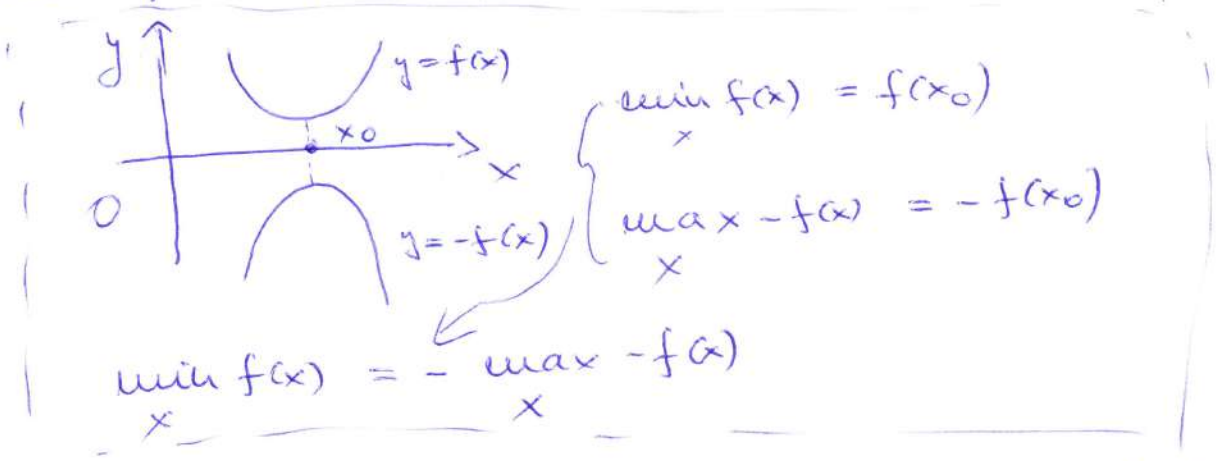 y
y = f(x)
x₀
x
O
y = -f(x)
min f(x) = f(x₀)
x
max -f(x) = -f(x₀)
x
min f(x) = - max -f(x)
x x